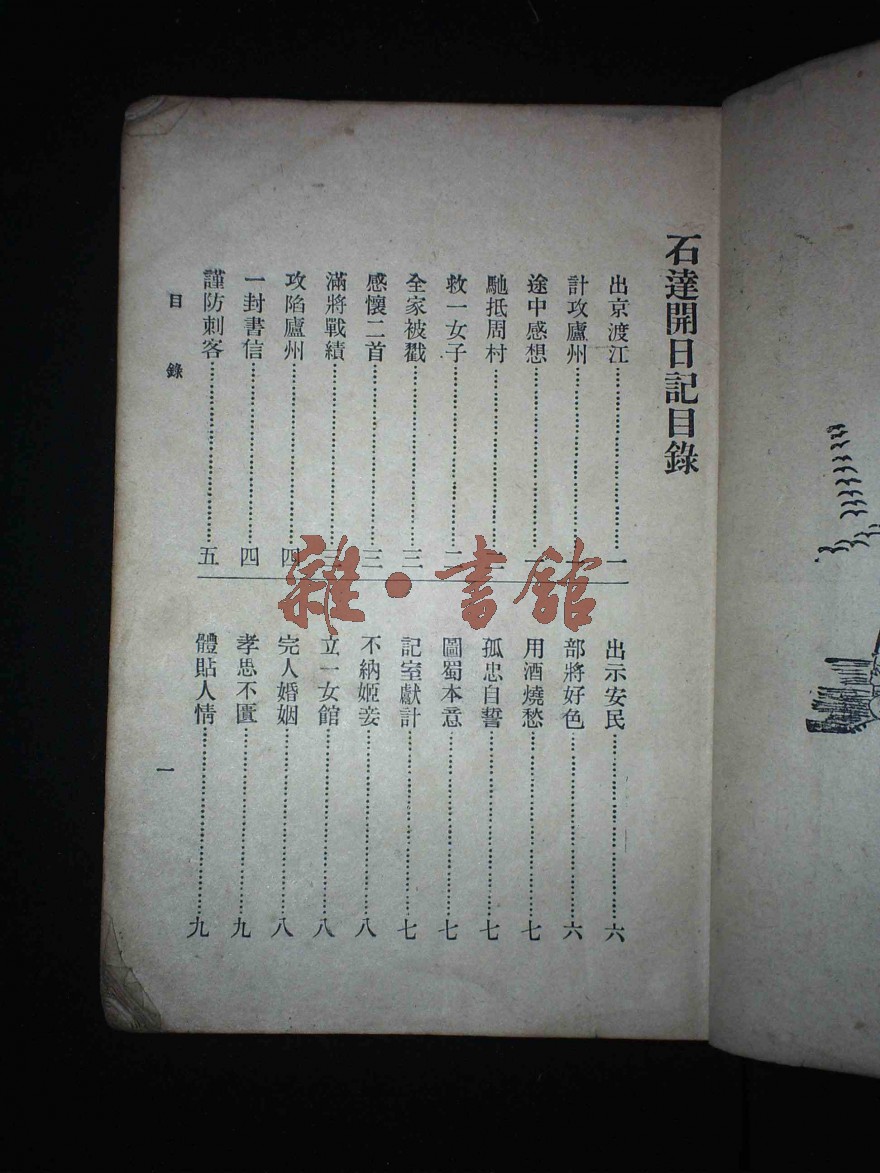 石達開日記目錄
出京渡江……一
計攻廬州……一
途中感想……一
馳抵周村……二
救一女子……二
全家被戳……三
感懷二首……三
滿將戰績……三
攻陷廬州……四
一封書信……四
謹防刺客……五
出示安民……六
部將好色……六
用酒燒愁……七
孤忠自誓……七
圖蜀本意……七
記室獻計……七
不納姬妾……八
立一女館……八
完人婚姻……八
孝思不匱……九
體貼人情……九
目錄
一
雜·書館